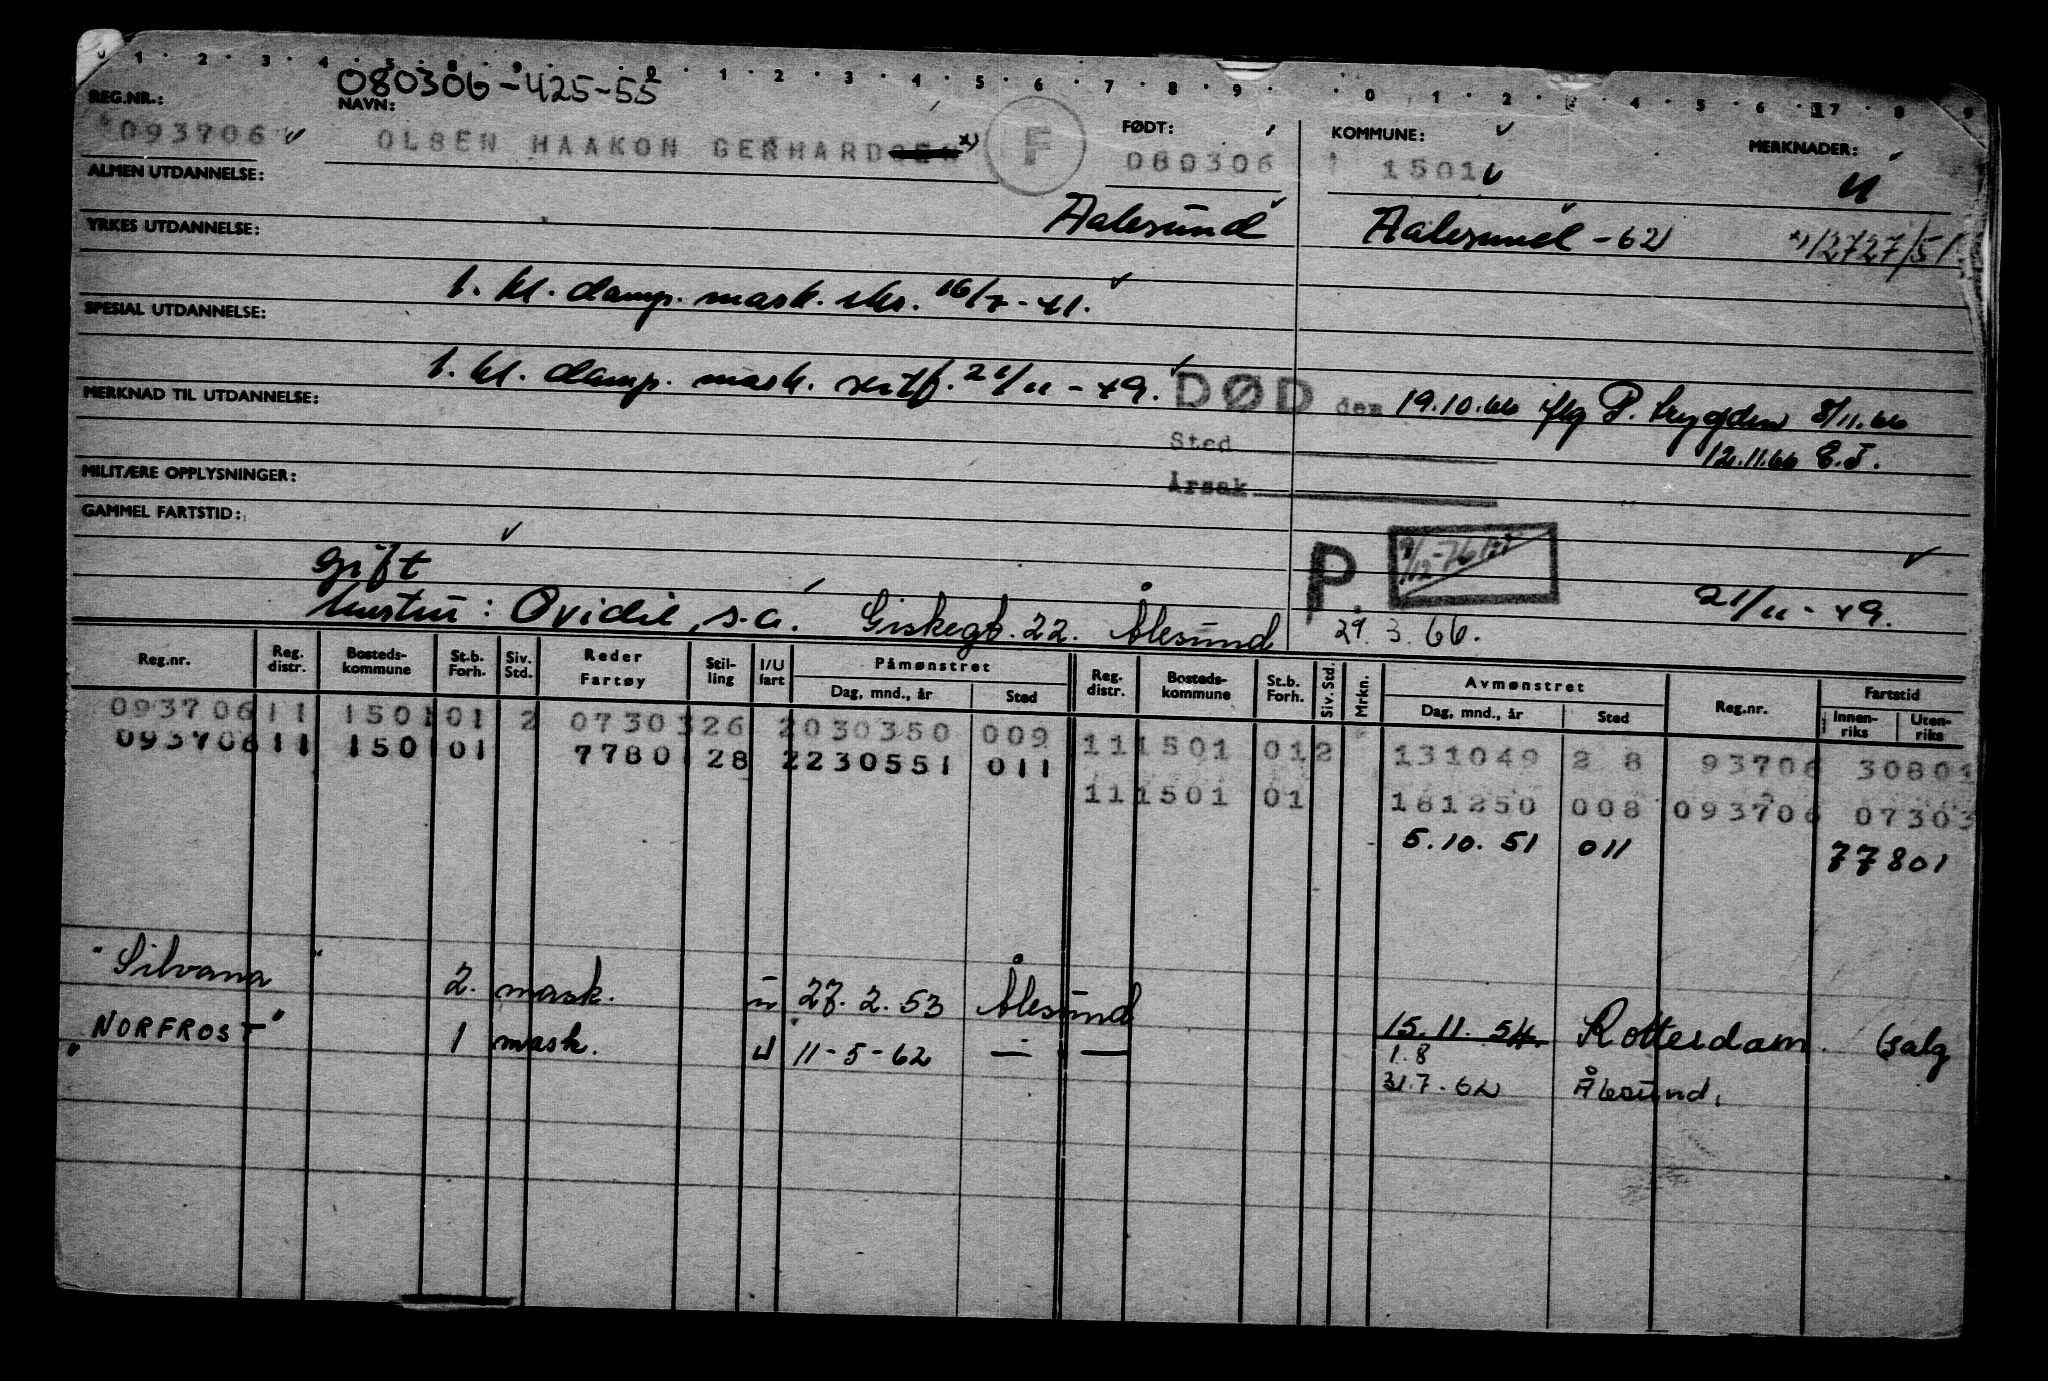 1 · 2 · 3 · 4 · 5 · 6 · 7 · 8 · 9 · 0 · 1 · 2 · 3 · 4 · 5 · 6 · 7 · 8 · 9
080306-425-55
REG.NR.: NAVN: FØDT: KOMMUNE: MERKNADER:
093706 OLSEN HAAKON GERHARD x) F 080306 1501 U
ALMEN UTDANNELSE:
Aalesund Aalesund -62 x) 2727/51
YRKES UTDANNELSE:
1. kl. damp. mask. eks. 16/7-41.
SPESIAL UTDANNELSE:
1. kl. damp. mask. sertf. 21/11-49.
DØD den 19.10.66 iflg P. trygden 8/11.66
MERKNAD TIL UTDANNELSE:
Sted 12.11.66 E.J.
MILITÆRE OPPLYSNINGER: Årsak
GAMMEL FARTSTID:
P 9/12-76
gift 21/11-49.
hustru: Ovidie, s.a. Giskegt. 22. Ålesund 29.3.66.
Reg.nr. Reg. distr. Bosteds-kommune St.b. Forh. Siv. Std. Reder Fartøy Stil-ling I/U fart Påmønstret Dag, mnd., år Sted Reg. distr. Bosteds-kommune St.b. Forh. Siv. Std. Mrkn. Avmønstret Dag, mnd., år Sted Reg.nr. Fartstid Innen-riks Uten-riks
093706 11 1501 01 2 07303 26 2 030350 009
11 1501 01 2 131049 2 8 93706 30801
093706 11 1501 01 7780 28 2 230551 011
11 1501 01 181250 008 093706 07303
5.10.51 011 77801
"Silvana" 2. mask. u 27.2.53 Ålesund 15.11.54. Rotterdam. (salg
"NORFROST" 1 mask. U 11-5-62 — — 1.8
31.7.62 Ålesund.